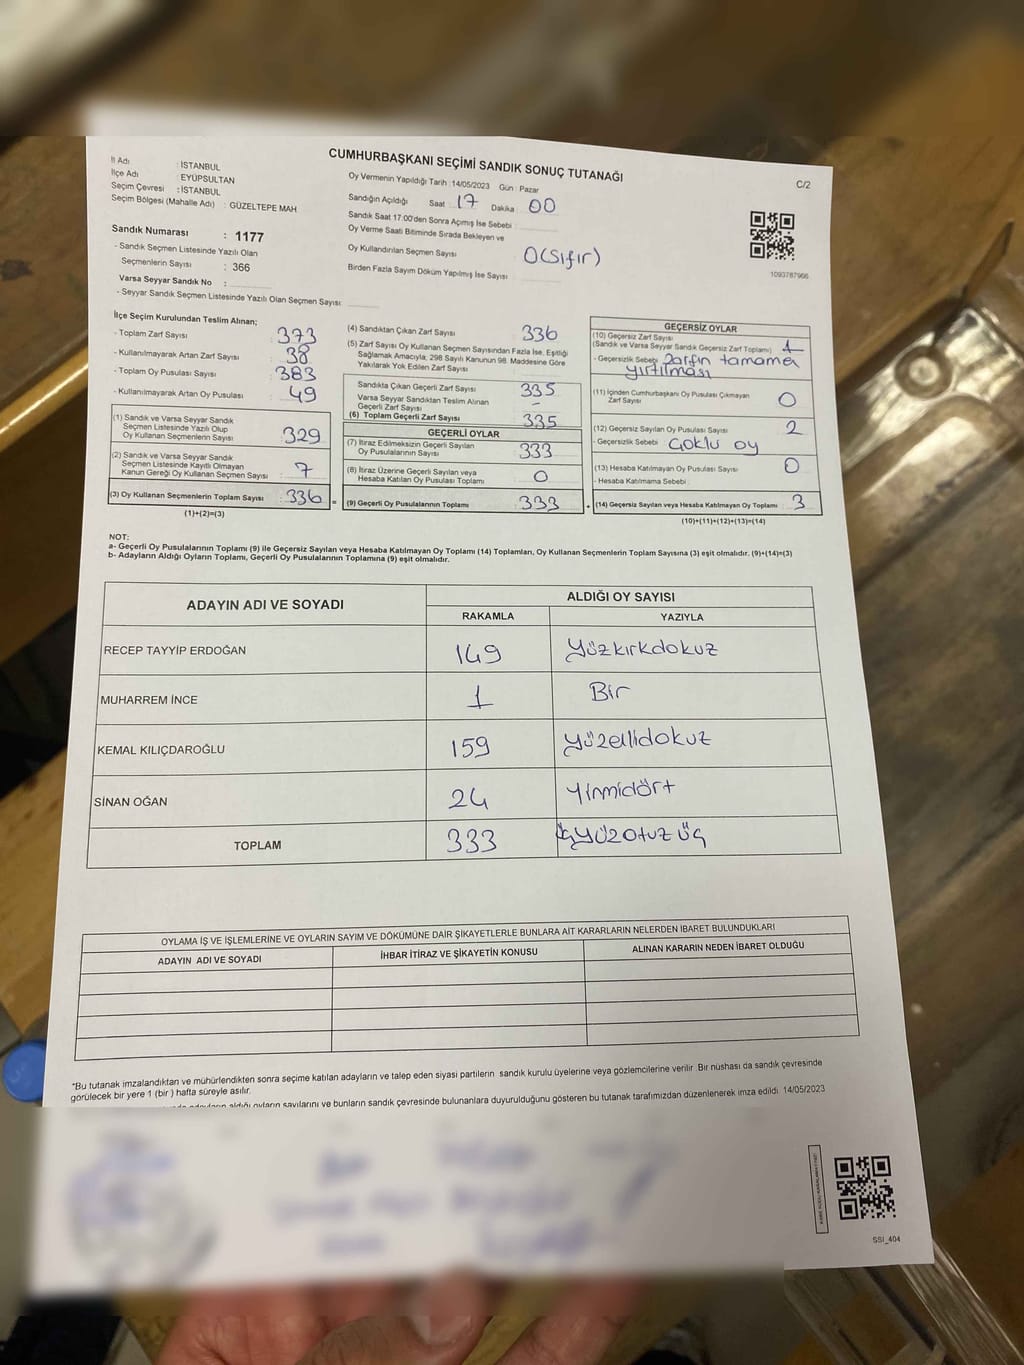 CUMHURBAŞKANI SEÇİMİ SANDIK SONUÇ TUTANAĞI
C/2
İl Adı : İSTANBUL
İlçe Adı : EYÜPSULTAN
Seçim Çevresi : İSTANBUL
Seçim Bölgesi (Mahalle Adı) : GÜZELTEPE MAH
Sandık Numarası : 1177
- Sandık Seçmen Listesinde Yazılı Olan
Seçmenlerin Sayısı : 366
Varsa Seyyar Sandık No :
- Seyyar Sandık Seçmen Listesinde Yazılı Olan Seçmen Sayısı:
Oy Vermenin Yapıldığı Tarih : 14/05/2023 Gün : Pazar
Sandığın Açıldığı Saat 17 Dakika 00
Sandık Saat 17:00'den Sonra Açımış İse Sebebi :
Oy Verme Saati Bitiminde Sırada Bekleyen ve
Oy Kullandırılan Seçmen Sayısı : 0(sıfır)
Birden Fazla Sayım Döküm Yapılmış İse Sayısı :
1093787966
İlçe Seçim Kurulundan Teslim Alınan;
- Toplam Zarf Sayısı : 373
- Kullanılmayarak Artan Zarf Sayısı : 38
- Toplam Oy Pusulası Sayısı : 383
- Kullanılmayarak Artan Oy Pusulası : 49
(1) Sandık ve Varsa Seyyar Sandık
Seçmen Listesinde Yazılı Olup
Oy Kullanan Seçmenlerin Sayısı : 329
(2) Sandık ve Varsa Seyyar Sandık
Seçmen Listesinde Kayıtlı Olmayan
Kanun Gereği Oy Kullanan Seçmen Sayısı : 7
(3) Oy Kullanan Seçmenlerin Toplam Sayısı : 336
(1)+(2)=(3)
=
(4) Sandıktan Çıkan Zarf Sayısı : 336
(5) Zarf Sayısı Oy Kullanan Seçmen Sayısından Fazla İse, Eşitliği
Sağlamak Amacıyla; 298 Sayılı Kanunun 98. Maddesine Göre
Yakılarak Yok Edilen Zarf Sayısı :
Sandıkta Çıkan Geçerli Zarf Sayısı : 335
Varsa Seyyar Sandıktan Teslim Alınan
Geçerli Zarf Sayısı : -
(6) Toplam Geçerli Zarf Sayısı : 335
GEÇERLİ OYLAR
(7) İtiraz Edilmeksizin Geçerli Sayılan
Oy Pusulalarının Sayısı : 333
(8) İtiraz Üzerine Geçerli Sayılan veya
Hesaba Katılan Oy Pusulası Toplamı : 0
(9) Geçerli Oy Pusulalarının Toplamı : 333
+
GEÇERSİZ OYLAR
(10) Geçersiz Zarf Sayısı
(Sandık ve Varsa Seyyar Sandık Geçersiz Zarf Toplamı) : 1
- Geçersizlik Sebebi : Zarfın tamamen
yırtılması
(11) İçinden Cumhurbaşkanı Oy Pusulası Çıkmayan
Zarf Sayısı : 0
(12) Geçersiz Sayılan Oy Pusulası Sayısı : 2
- Geçersizlik Sebebi : Çoklu oy
(13) Hesaba Katılmayan Oy Pusulası Sayısı : 0
- Hesaba Katılmama Sebebi :
(14) Geçersiz Sayılan veya Hesaba Katılmayan Oy Toplamı : 3
(10)+(11)+(12)+(13)=(14)
NOT:
a- Geçerli Oy Pusulalarının Toplamı (9) ile Geçersiz Sayılan veya Hesaba Katılmayan Oy Toplamı (14) Toplamları, Oy Kullanan Seçmenlerin Toplam Sayısına (3) eşit olmalıdır. (9)+(14)=(3)
b- Adayların Aldığı Oyların Toplamı, Geçerli Oy Pusulalarının Toplamına (9) eşit olmalıdır.
ADAYIN ADI VE SOYADI
ALDIĞI OY SAYISI
RAKAMLA YAZIYLA
RECEP TAYYİP ERDOĞAN 149 Yüzkırkdokuz
MUHARREM İNCE 1 Bir
KEMAL KILIÇDAROĞLU 159 yüzellidokuz
SİNAN OĞAN 24 Yirmidört
TOPLAM 333 üçyüzotuzüç
OYLAMA İŞ VE İŞLEMLERİNE VE OYLARIN SAYIM VE DÖKÜMÜNE DAİR ŞİKAYETLERLE BUNLARA AİT KARARLARIN NELERDEN İBARET BULUNDUKLARI
ADAYIN ADI VE SOYADI İHBAR İTİRAZ VE ŞİKAYETİN KONUSU ALINAN KARARIN NEDEN İBARET OLDUĞU
*Bu tutanak imzalandıktan ve mühürlendikten sonra seçime katılan adayların ve talep eden siyasi partilerin sandık kurulu üyelerine veya gözlemcilerine verilir. Bir nüshası da sandık çevresinde
görülecek bir yere 1 (bir ) hafta süreyle asılır.
aldığı oyların sayılarını ve bunların sandık çevresinde bulunanlara duyurulduğunu gösteren bu tutanak tarafımızdan düzenlenerek imza edildi. 14/05/2023
SSI_404